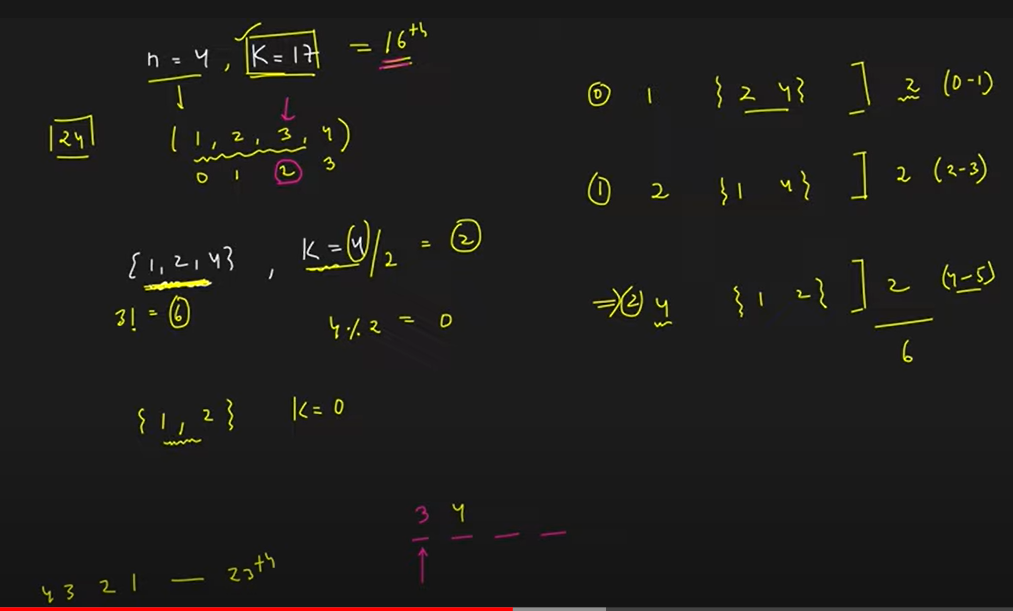 n = 4, K = 17 = 16th
24
(1, 2, 3, 4)
0 1 2 3
{1, 2, 4}, K = 4/2 = 2
3! = 6
4 % 2 = 0
{1, 2} K = 0
3 4
4 3 2 1 — 23th
0 1 {2 4} ] 2 (0-1)
1 2 {1 4} ] 2 (2-3)
⇒ 2 4 {1 2} ] 2 (4-5)
6